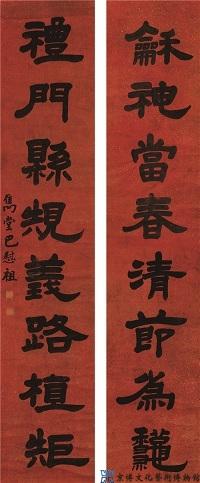 龢神當春清節為龝
禮門縣規義路植矩
雋堂巴慰祖
京博文化藝術博物館